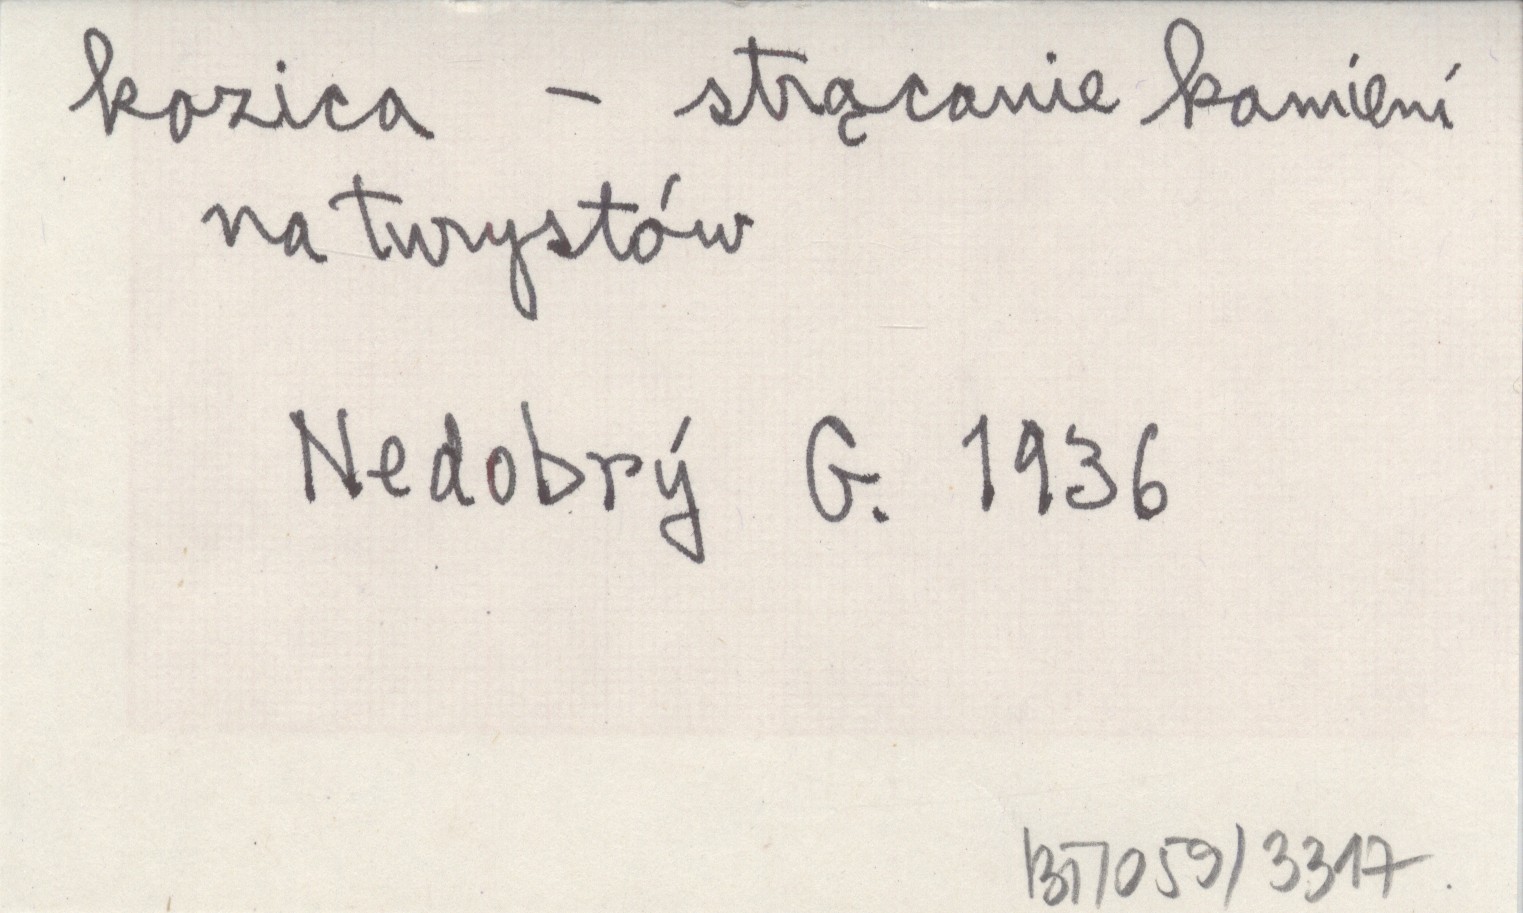 kozica – strącanie kamieni
na turystów
Nedobrý G. 1936
BT/059/3317.